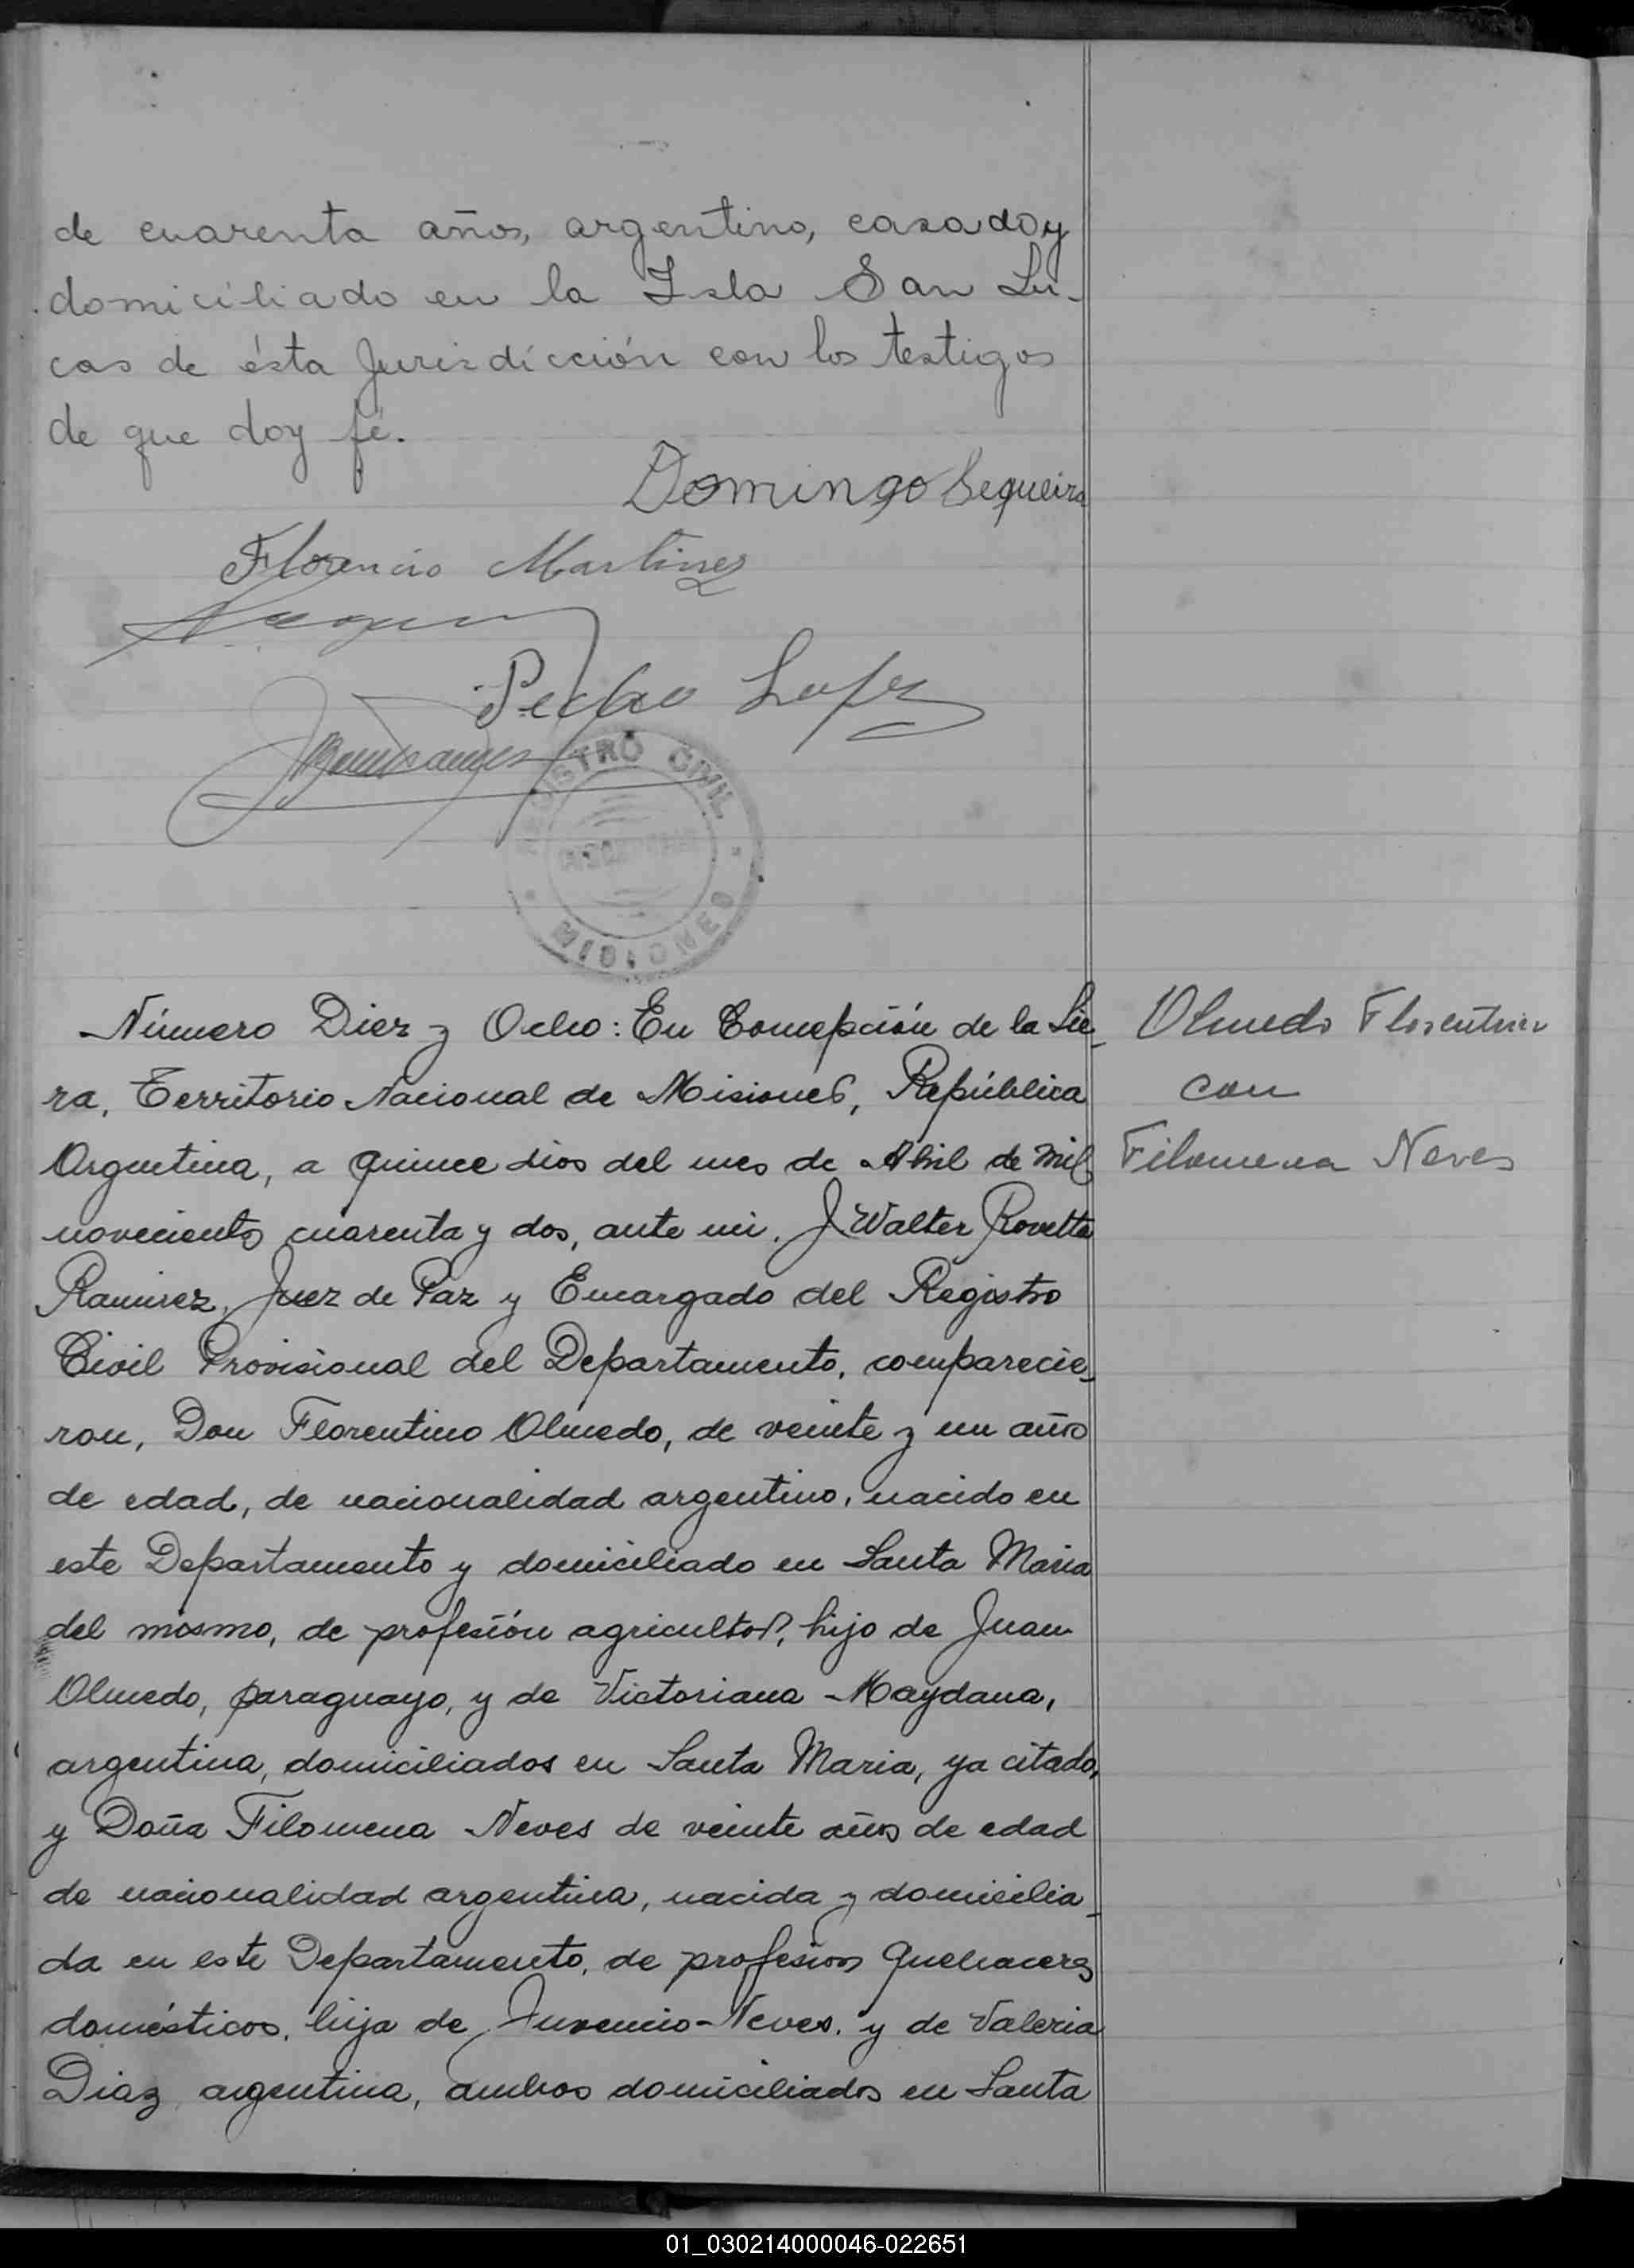 de cuarenta años, argentino, casado y
domiciliado en la Isla San Lu-
cas de ésta Jurisdicción con los testigos
de que doy fé.
Domingo Sequeira
Florencio Martinez
Pedro Lopez
REGISTRO CIVIL
MISIONES
Número Diez y Ocho: En Concepción de la Sie-
Olmedo Florentino
ra, Territorio Nacional de Misiones, República
con
Argentina, a quince dias del mes de Abril de mil
Filomena Neves
novecientos cuarenta y dos, ante mi. J. Walter Rovetta
Ramirez, Juez de Paz y Encargado del Registro
Civil Provisional del Departamento, comparecie-
ron, Don Florentino Olmedo, de veinte y un años
de edad, de nacionalidad argentino, nacido en
este Departamento y domiciliado en Santa Maria
del mismo, de profesión agricultor, hijo de Juan
Olmedo, paraguayo, y de Victoriana Maydana,
argentina, domiciliados en Santa Maria, ya citado,
y Doña Filomena Neves de veinte años de edad
de nacionalidad argentina, nacida y domicilia-
da en este Departamento, de profesion quehaceres
domésticos, hija de Juvencio Neves, y de Valeria
Diaz, argentina, ambos domiciliados en Santa
01_030214000046-022651